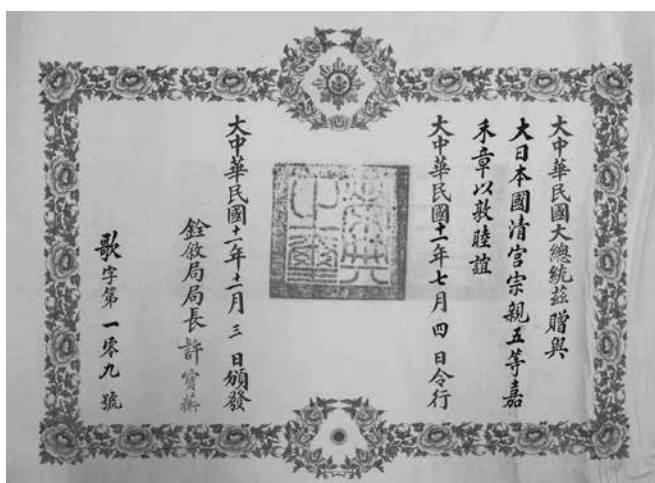 大中華民國大總統茲贈與
大日本國清宮宗親五等嘉
禾章以敦睦誼
大中華民國十一年七月四日令行
榮典之璽
大中華民國十一年十一月三日頒發
銓敘局局長許寶蘅
歌字第一零九號